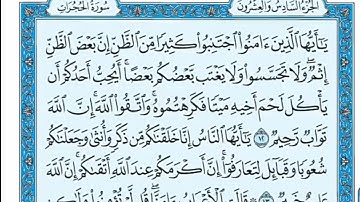 الجزء السادس والعشرون سورة الحجرات
يَٰٓأَيُّهَا ٱلَّذِينَ ءَامَنُوا۟ ٱجْتَنِبُوا۟ كَثِيرًا مِّنَ ٱلظَّنِّ إِنَّ بَعْضَ ٱلظَّنِّ
إِثْمٌ ۖ وَلَا تَجَسَّسُوا۟ وَلَا يَغْتَب بَّعْضُكُم بَعْضًا ۚ أَيُحِبُّ أَحَدُكُمْ أَن
يَأْكُلَ لَحْمَ أَخِيهِ مَيْتًا فَكَرِهْتُمُوهُ ۚ وَٱتَّقُوا۟ ٱللَّهَ ۚ إِنَّ ٱللَّهَ
تَوَّابٌ رَّحِيمٌ ١٢ يَٰٓأَيُّهَا ٱلنَّاسُ إِنَّا خَلَقْنَٰكُم مِّن ذَكَرٍ وَأُنثَىٰ وَجَعَلْنَٰكُمْ
شُعُوبًا وَقَبَآئِلَ لِتَعَارَفُوٓا۟ ۚ إِنَّ أَكْرَمَكُمْ عِندَ ٱللَّهِ أَتْقَىٰكُمْ ۚ إِنَّ ٱللَّهَ